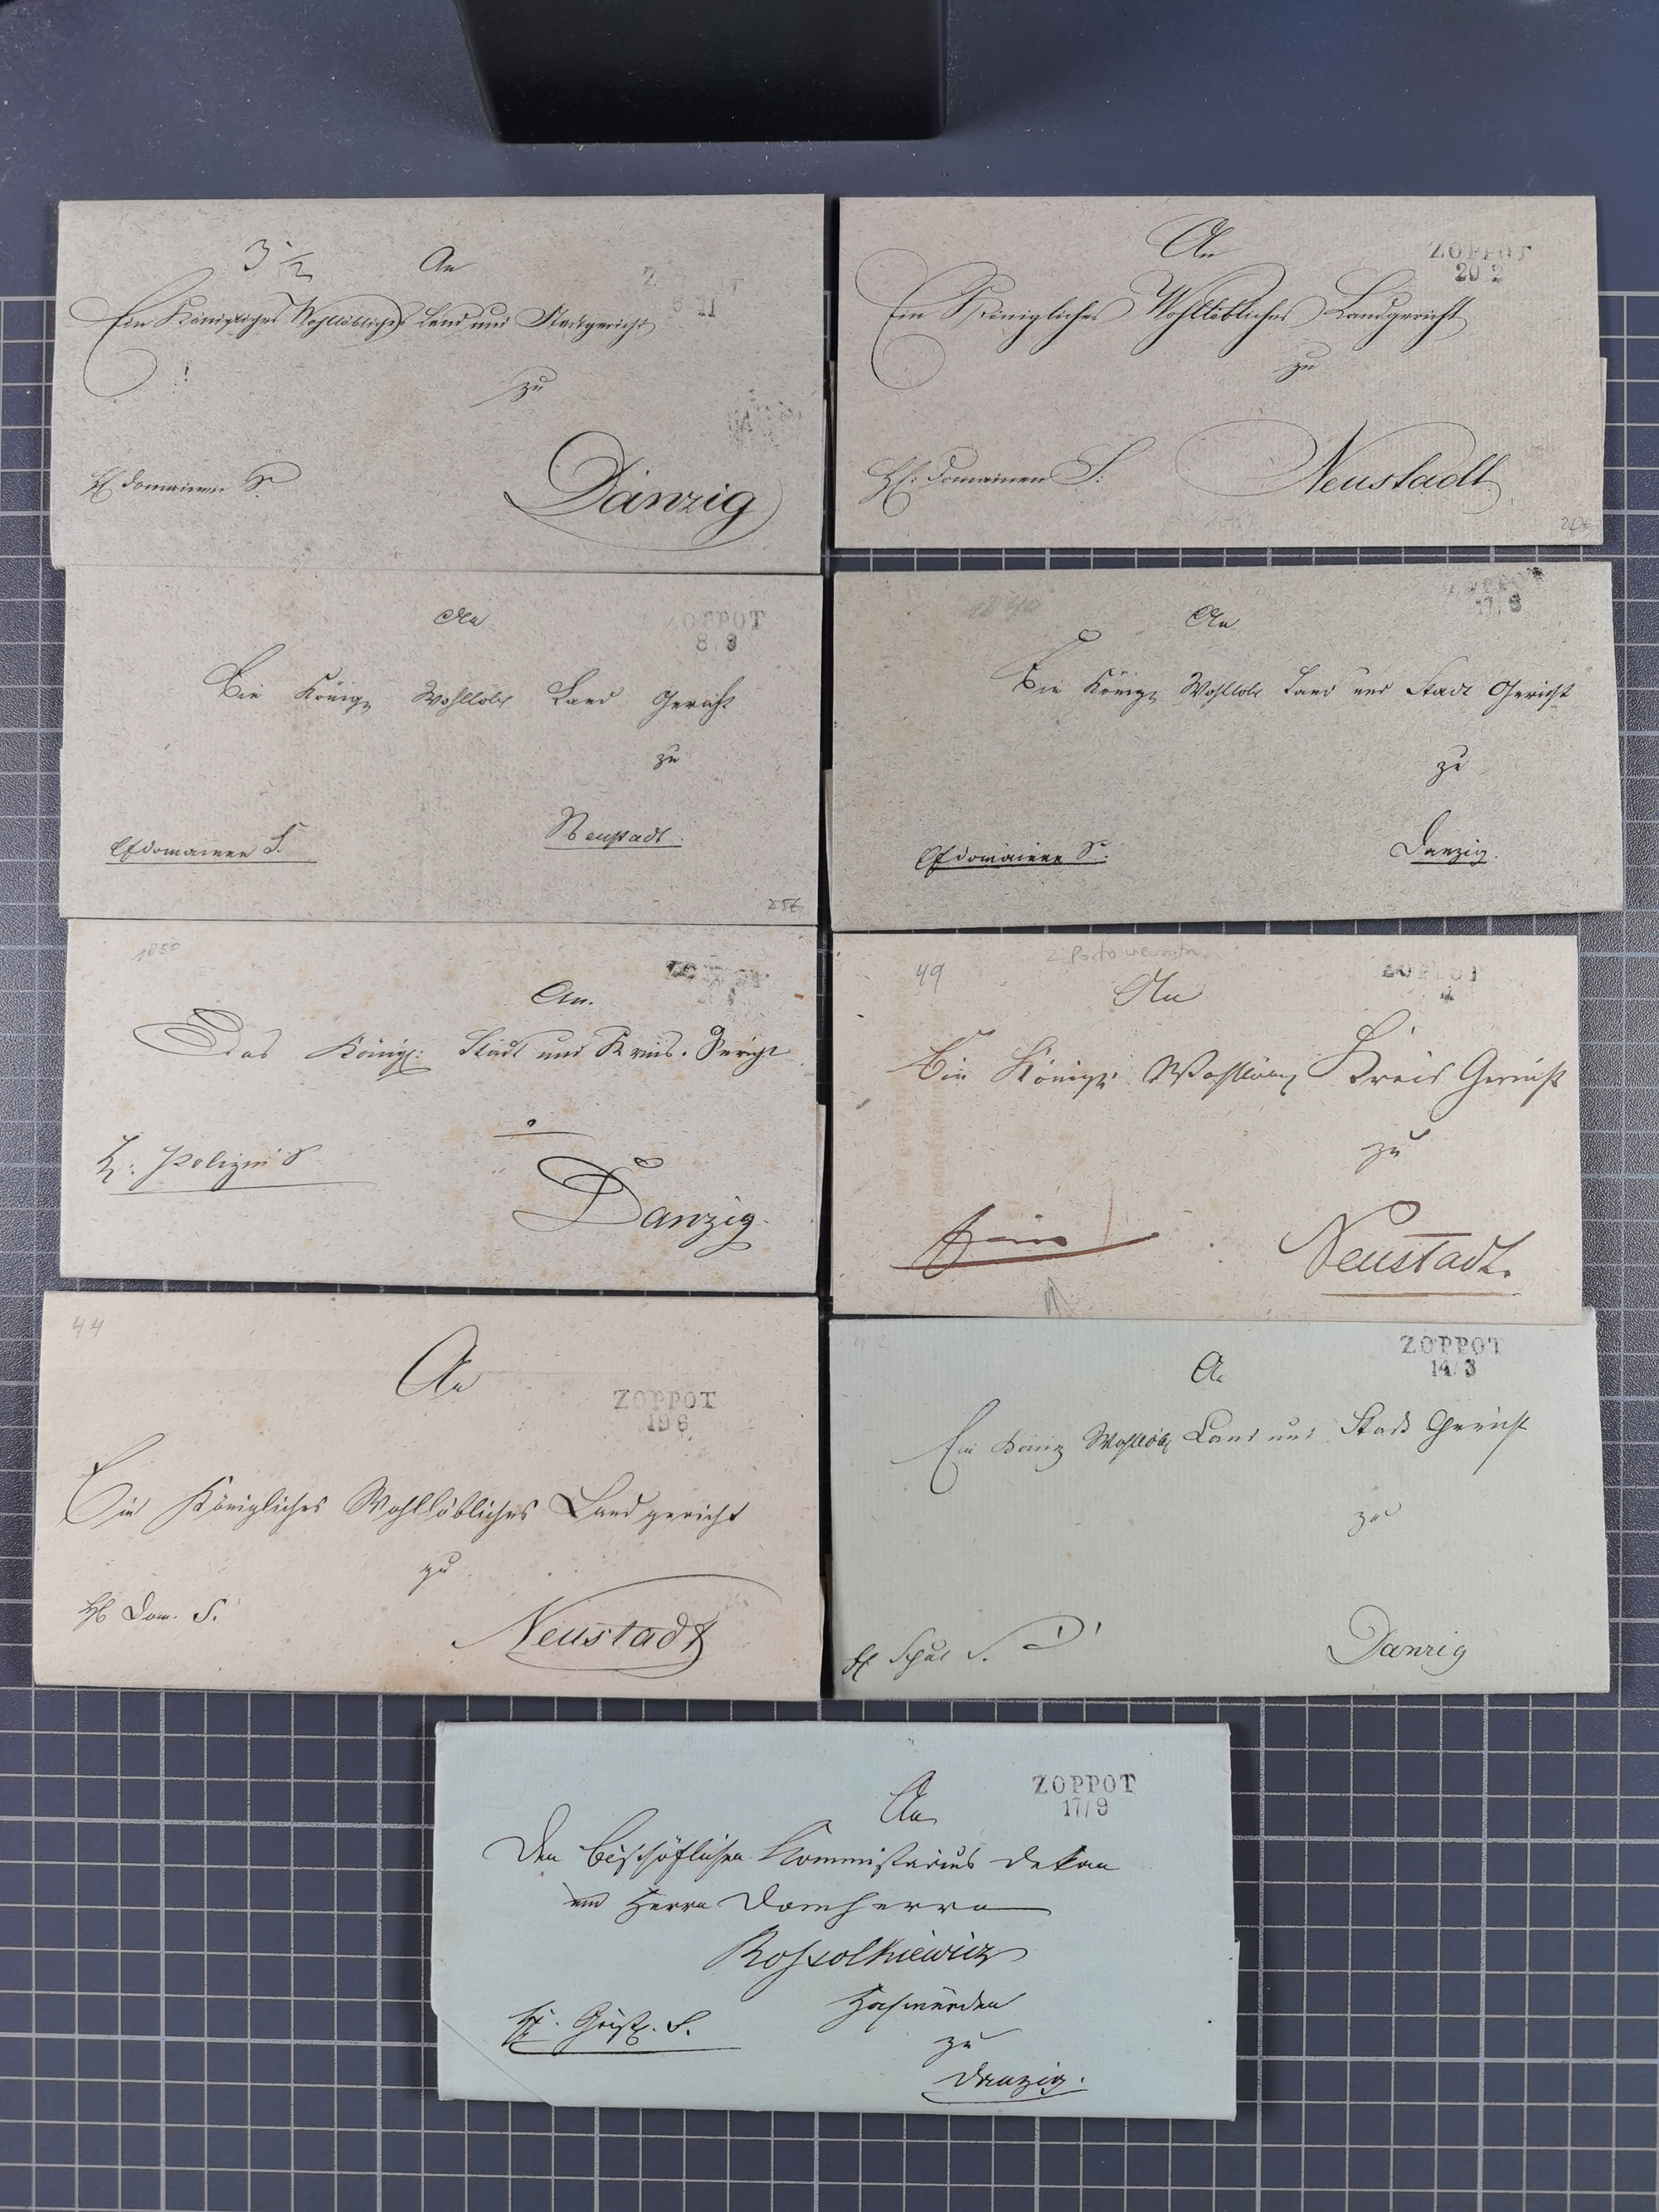 3 1/2
An
6 11
Ein Königliches Wohllöbliches Land und Stadtgericht
zu
Danzig
Domainen S.
ZOPPOT
20 2
An
Ein Königliches Wohllöbliches Landgericht
zu
Neustadt
Domainen S:
ZOPPOT
8/9
An
Ein Königl Wohllöbl Land Gericht
zu
Neustadt.
Domainen S.
1840
ZOPPOT
17/8
An
Ein Königl Wohllöbl Land und Stadt Gericht
zu
Danzig.
Domainen S.
1850
An.
Das Königl: Stadt und Kreis. Gericht
Polizei S
Danzig.
49
ZOPPOT
An
Ein Königl Wohllöbl Kreis Gericht
zu
Neustadt.
44
An
ZOPPOT
19 6
Ein Königliches Wohllöbliches Landgericht
zu
Dom. S.
Neustadt
ZOPPOT
14/3
An
Ein Königl Wohllöbl Land und Stadt Gericht
zu
Schul S.
Danzig
ZOPPOT
17/9
An
Den bischöflichen Kommissarius Dekan
und Herrn Domherrn
Rossolkiewicz
Hochwürden
Geistl. S.
zu
Danzig.